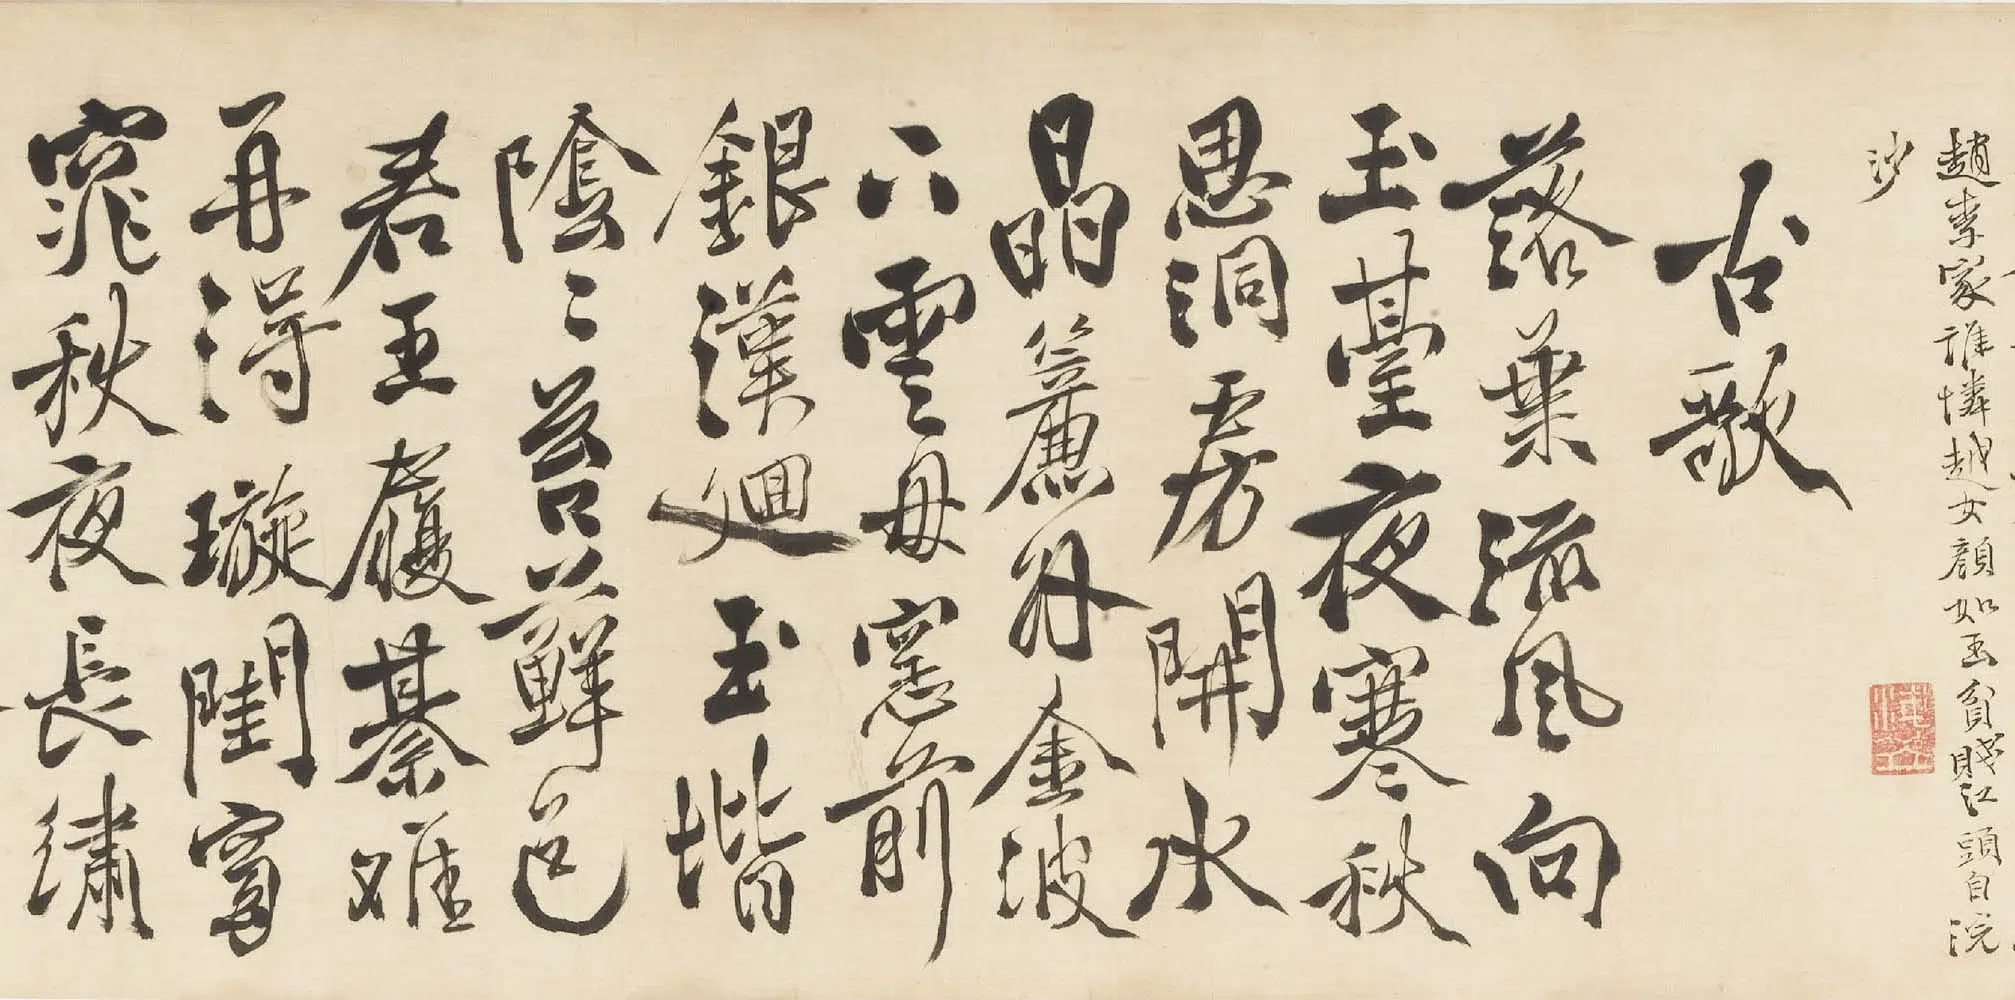 趙李家誰憐越女顏如玉貧賤江頭自浣
沙
古歌
落葉流風向
玉臺夜寒秋
思洞房開水
晶簾外金波
下雲母窓前
銀漢迴玉堦
陰〻苔蘚色
君王履綦難
再得璇閨窈
窕秋夜長繡